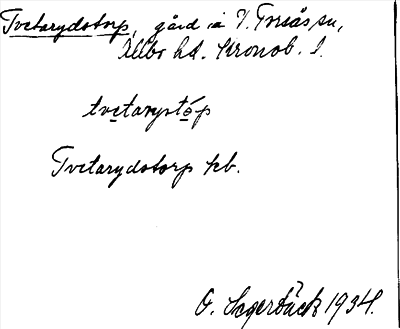 Tvetarydstorp, gård i V. Torsås sn,
Allbo hd. Kronob. l.
tvetarystóp
Tvetarydstorp kb.
O. Lagerbäck 1934.